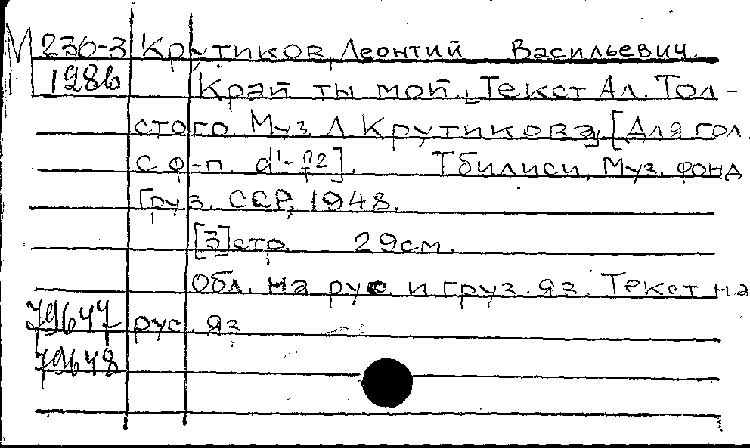 М 236-3 Крутиков, Леонтий Васильевич.
1986 Край ты мой. Текст Ал. Тол-
стого Муз. Л. Крутикова, [Для гол.
с ф-п. d¹-f2]. Тбилиси, Муз. фонд
Груз. ССР, 1948.
[3] стр. 29 см.
Обл. на рус и груз. яз. Текст на
79647 рус. яз
79648